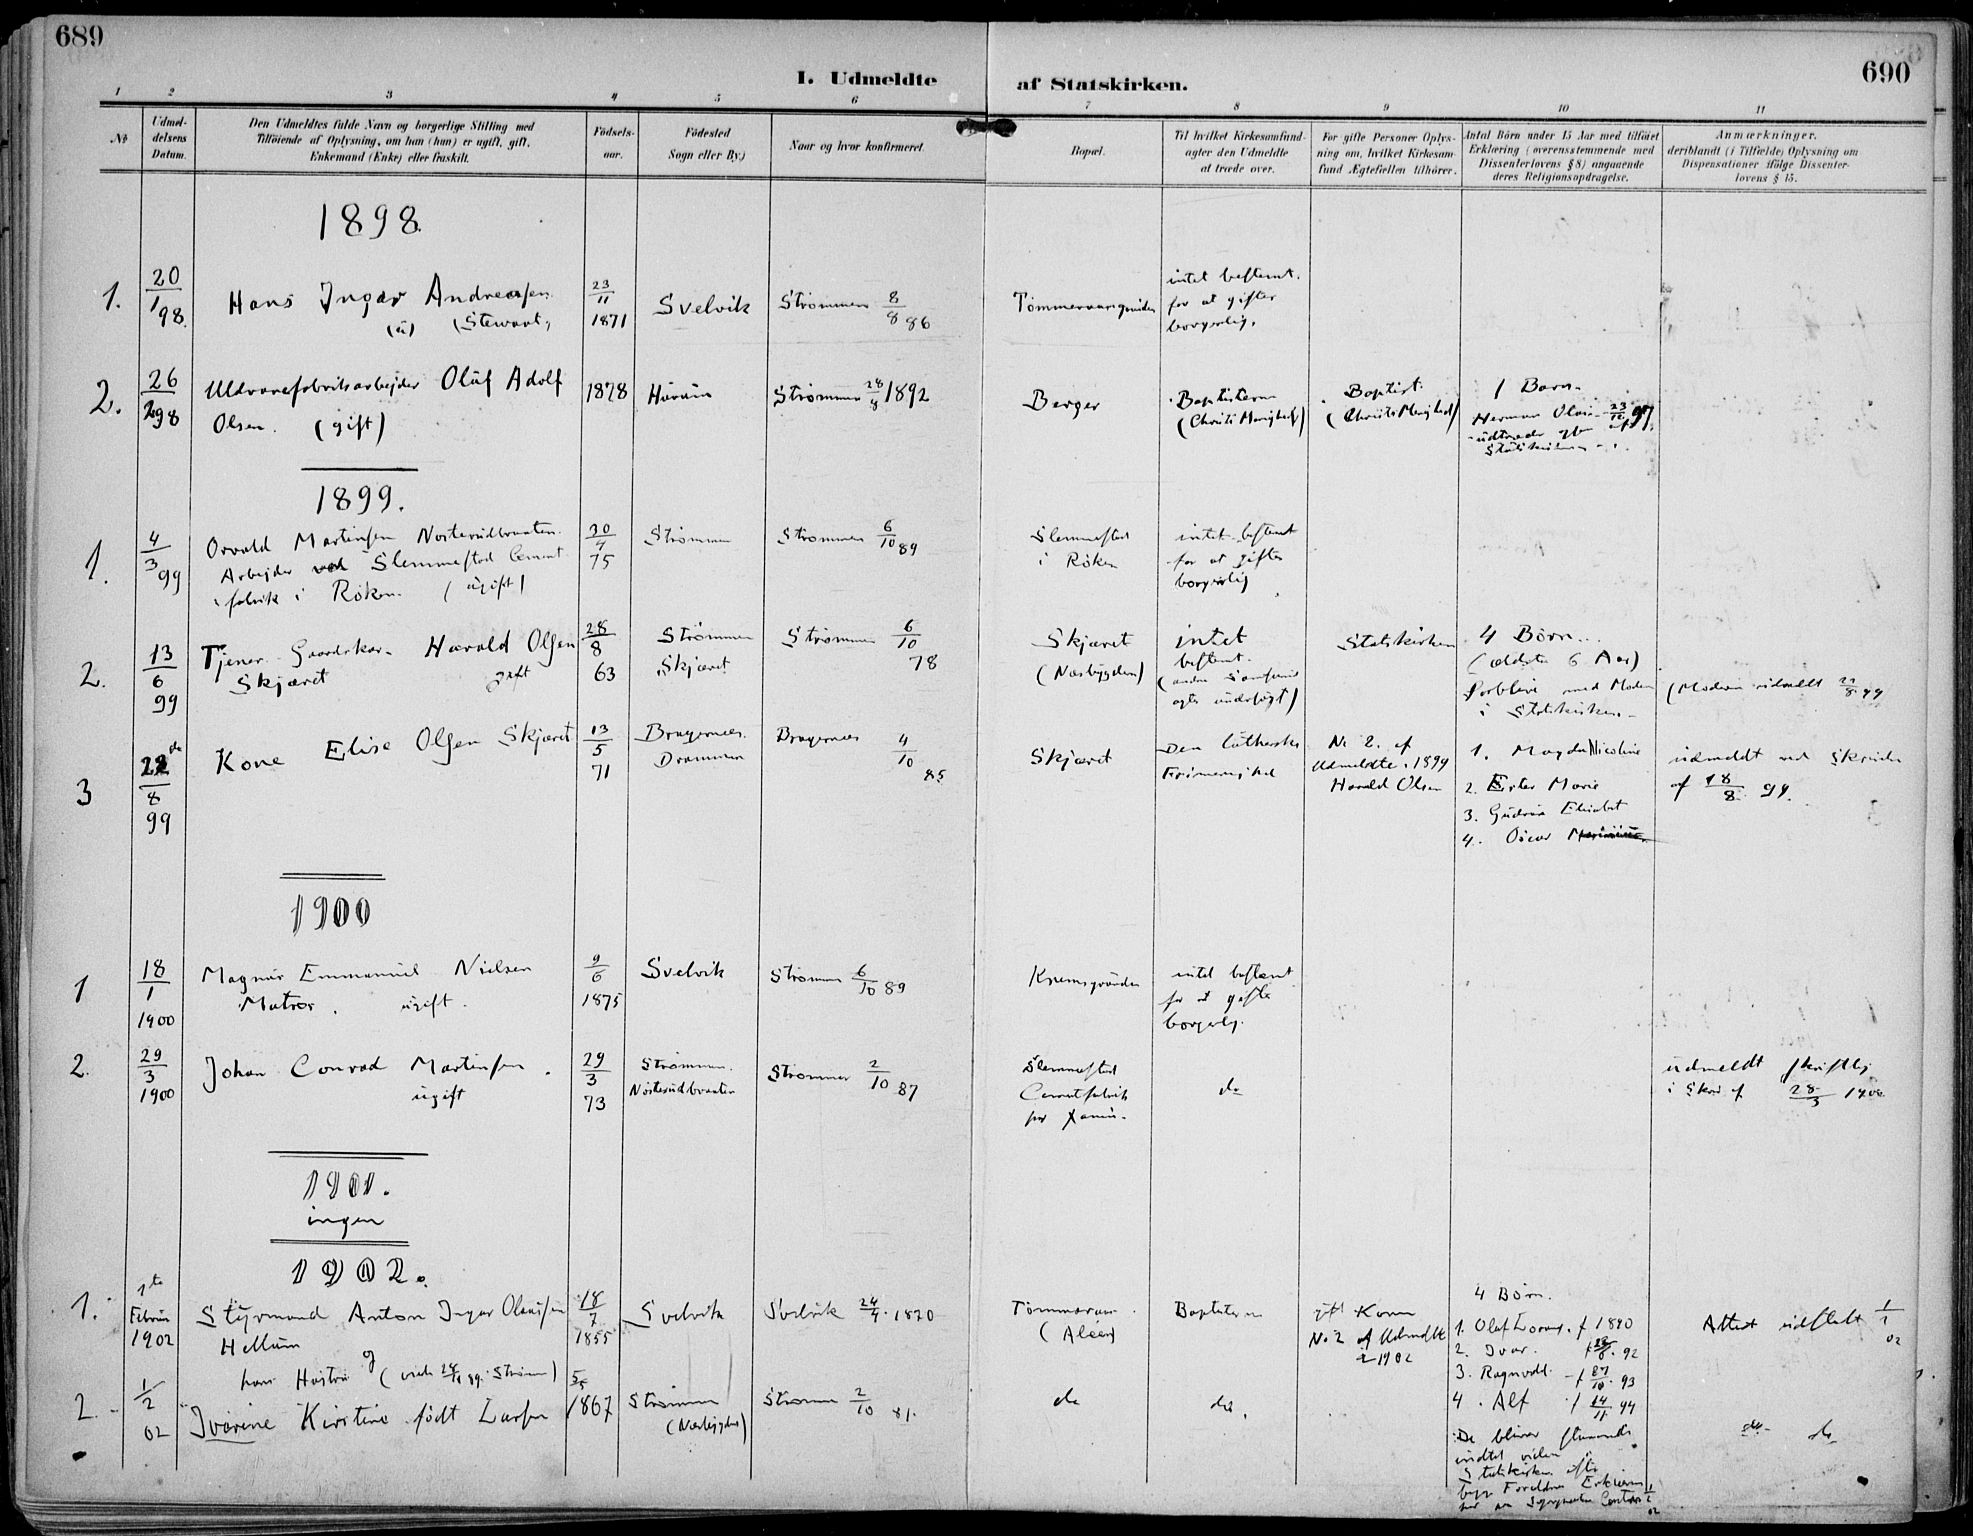 689
690
I. Udmeldte af Statskirken.
1 2 3 4 5 6 7 8 9 10 11
No
Udmeldelsens Datum.
Den Udmeldtes fulde Navn og borgerlige Stilling med
Tilföiende af Oplysning, om han (hun) er ugift, gift,
Enkemand (Enke) eller fraskilt.
Födselsaar.
Födested
Sogn eller By.)
Naar og hvor konfirmeret.
Bopæl.
Til hvilket Kirkesamfund
agter den Udmeldte
at træde over.
For gifte Personer Oplysning
om, hvilket Kirkesamfund
Ægtefællen tilhörer.
Antal Börn under 15 Aar med tilföiet
Erklæring (overensstemmende med
Dissenterlovens § 8) angaaende
deres Religionsopdragelse.
Anmærkninger,
deriblandt (i Tilfælde) Oplysning om
Dispensationer ifölge Dissenterlovens
§ 15.
1898.
1. 20/1 98. Hans Ingar Andreasen (u) (Stewart) 23/11 1871 Svelvik Strømmen 8/8 86
intet bestemt.
for at giftes
borgerlig.
2. 26/2 98 Uldvarefabriksarbejder Oluf Adolf
Olsen. (gift)
1878 Hurum Strømmen 28/8 1892 Berger
Baptisterne
Baptist
1 Barn
Herman Olsen 97
udtræder af
Statskirken
1899.
1. 4/3 99 Osvald Martinsen Nosterudbraaten.
Arbejder ved Slemmestad Cement
fabrik i Røken. (ugift)
30/4 75 Strømmen Strømmen 6/10 89
Slemmestad
i Röken
intet bestemt
for at giftes
borgerlig
2. 13/6 99 Tjener Gaardskar Harald Olsen
Skjæret gift
28/8 63 Strømmen
Skjæret
Strømmen 6/10 78
Skjæret
(Nesbygden)
intet
bestemt.
Statskirken
4 Børn
(ældste 6 Aar)
Forblive med Moder
i Statskirken
(Moderen udmeldt 22/8 99
3 22de/8 99 Kone Elise Olsen Skjæret 13/5 71
Bragernes
Drammen
Bragernes 4/10 85
Skjæret
Den lutherske
Frimenighed
Nr 2. af
Udmeldte 1899
Harald Olsen
1. Magda Nicoline
2. Ester Marie
3. Gudrun Elisabet
4. Oscar
udmeldt ved Skrivelse
af 18/8 99.
1900
1 18/1 1900 Magnus Emmanuel Nielsen
Matros. ugift.
9/6 1875 Svelvik Strømmen 6/10 89
intet bestemt
for at gifte
borgerlig.
2. 29/3 1900 Johan Conrad Martinsen.
ugift
29/3 73
Strømmen.
Nosterudbraaten
Strømmen 2/10 87
Slemmestad
Cementfabrik
do
udmeldt skriftlig
i Skr. af 28/3 1900
1901.
ingen
1902.
1. 1ste Februar 1902
Styrmand Anton Ingar Olausen
Hellum
og
18/7 1855 Svelvik Svelvik 24/4. 1870
Baptisterne
gift Kone
No 2 af Udmeldte
i 1902
4 Börn.
1. Olaf f 1890
2. Ivar. 92
3. Ragnvald f 27/10. 93
4. Alf f 14/11 94
Attest udstedt 1/2 02
2. 1/2 02
hans Hustru
Ivarine Kirstine født Larsen
1867 Strømmen
(Nesbygden)
Strømm 2/10 81.
do do.
De bliver
Statskirken
do do